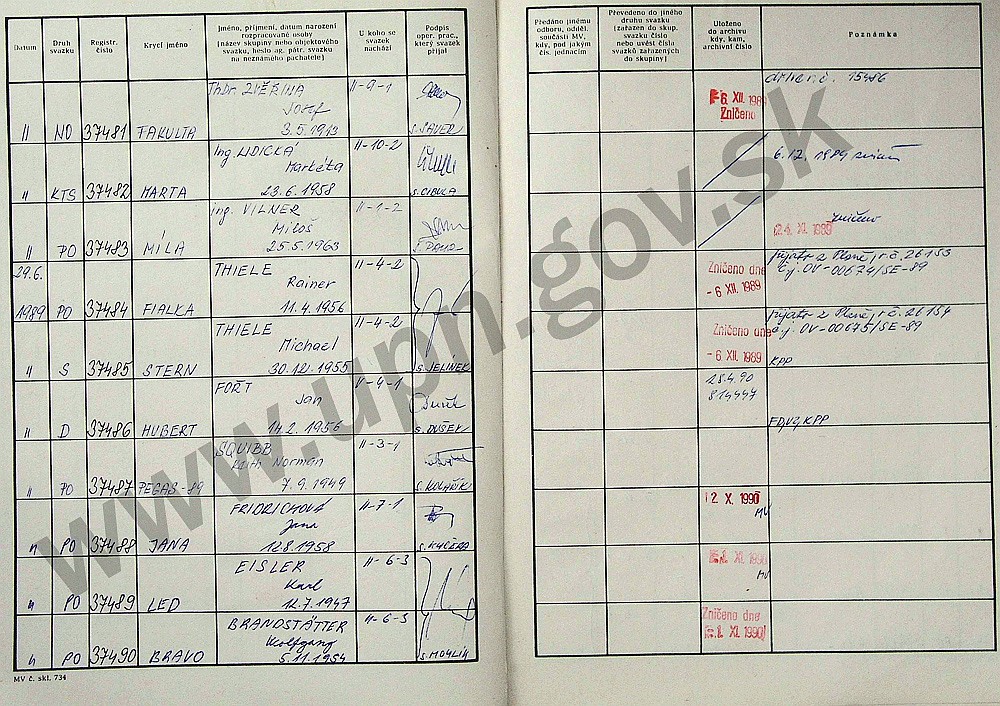 Datum
Druh svazku
Registr. číslo
Krycí jméno
Jméno, příjmení, datum narození
rozpracované osoby
(název skupiny nebo objektového
svazku, heslo ag. pátr. svazku
na neznámého pachatele)
U koho se
svazek
nachází
Podpis
oper. prac.,
který svazek
přijal
Předáno jinému
odboru, odděl.
součásti MV,
kdy, pod jakým
čís. jednacím
Převedeno do jiného
druhu svazku
(zařazen do skup.
svazku číslo
nebo uvést čísla
svazků zařazených
do skupiny)
Uloženo
do archivu
kdy, kam,
archivní číslo
Poznámka
ThDr. ZVĚŘINA II-9-1
Josef
II NO 37481 FAKULTA 3.5.1913 S. SAUER
15486
-6. XII. 1989
Zničeno
Ing. LIDICKÁ II-10-2
Markéta
II KTS 37482 MARTA 23.6.1958 S. CIBULA
6.12.1989
ing. VILNER II-1-2
Miloš
II PO 37483 MÍLA 25.5.1963
zničeno
24. XI. 1989
29.6. THIELE II-4-2
Rainer
1989 PO 37484 FIALKA 11.4.1956
Zničeno dne
-6. XII. 1989
přjato z Plzně, r.č. 26153
č.j. OV-00674/SE-89
THIELE II-4-2
Michael
II S 37485 STERN 30.12.1955 S. JELÍNEK
Zničeno dne
-6. XII. 1989
přjato z Plzně, r.č. 26154
č.j. OV-00675/SE-89
KPP
FOŘT II-4-1
Jan
II D 37486 HUBERT 14.2.1956 S. DUŠEK
25.4.90
814447
SQUIBB II-3-1
Keith Norman
II PO 37487 PEGAS-89 7.9.1949
FRIDRICHOVÁ II-7-1
Jana
II PO 37488 JANA 12.8.1958 S. KUČERA
2. X. 1990
MV
EISLER II-6-3
Karl
II PO 37489 LED 12.7.1947
1. XI. 1990
MV
BRANDSTÄTTER II-6-3
Wolfgang
II PO 37490 BRAVO 5.11.1954
Zničeno dne
1. XI. 1990
MV č. skl. 734
www.upn.gov.sk